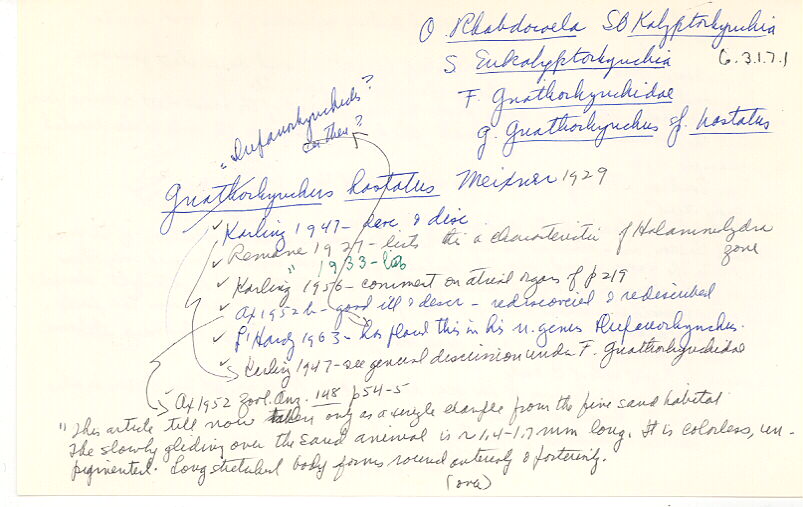 O Rhabdocoela SO Kalyptorhynchia
S Eukalyptorhynchia 6.3.1.7.1
F. Gnathorhynchidae
g. Gnathorhynchus sp. hastatus
"Drepanorhynchides?
or then?
Gnathorhynchus hastatus Meixner 1929
Karling 1947 - desc & disc
Remane 1927 - lists this a characteristic of Halammohydra zone
" 1933 - lab
Karling 1956 - comment on atrial organs of p 219
Ax 1952 b - good ill & descr - rediscovered & redescribed
L'Hardy 1963 - has placed this in his n. genus Drepanorhynchus.
Karling 1947 - see general discussion under F. Gnathorhynchidae
Ax 1952 Zool. Anz. 148 p 54-5
"This article till now taken only as a single example from the fine sand habitat
The slowly gliding over the sand animal is ~ 1.4-1.7 mm long. It is colorless, un-
pigmented. Long stretched body forms round anteriorly & posteriorly.
(over)